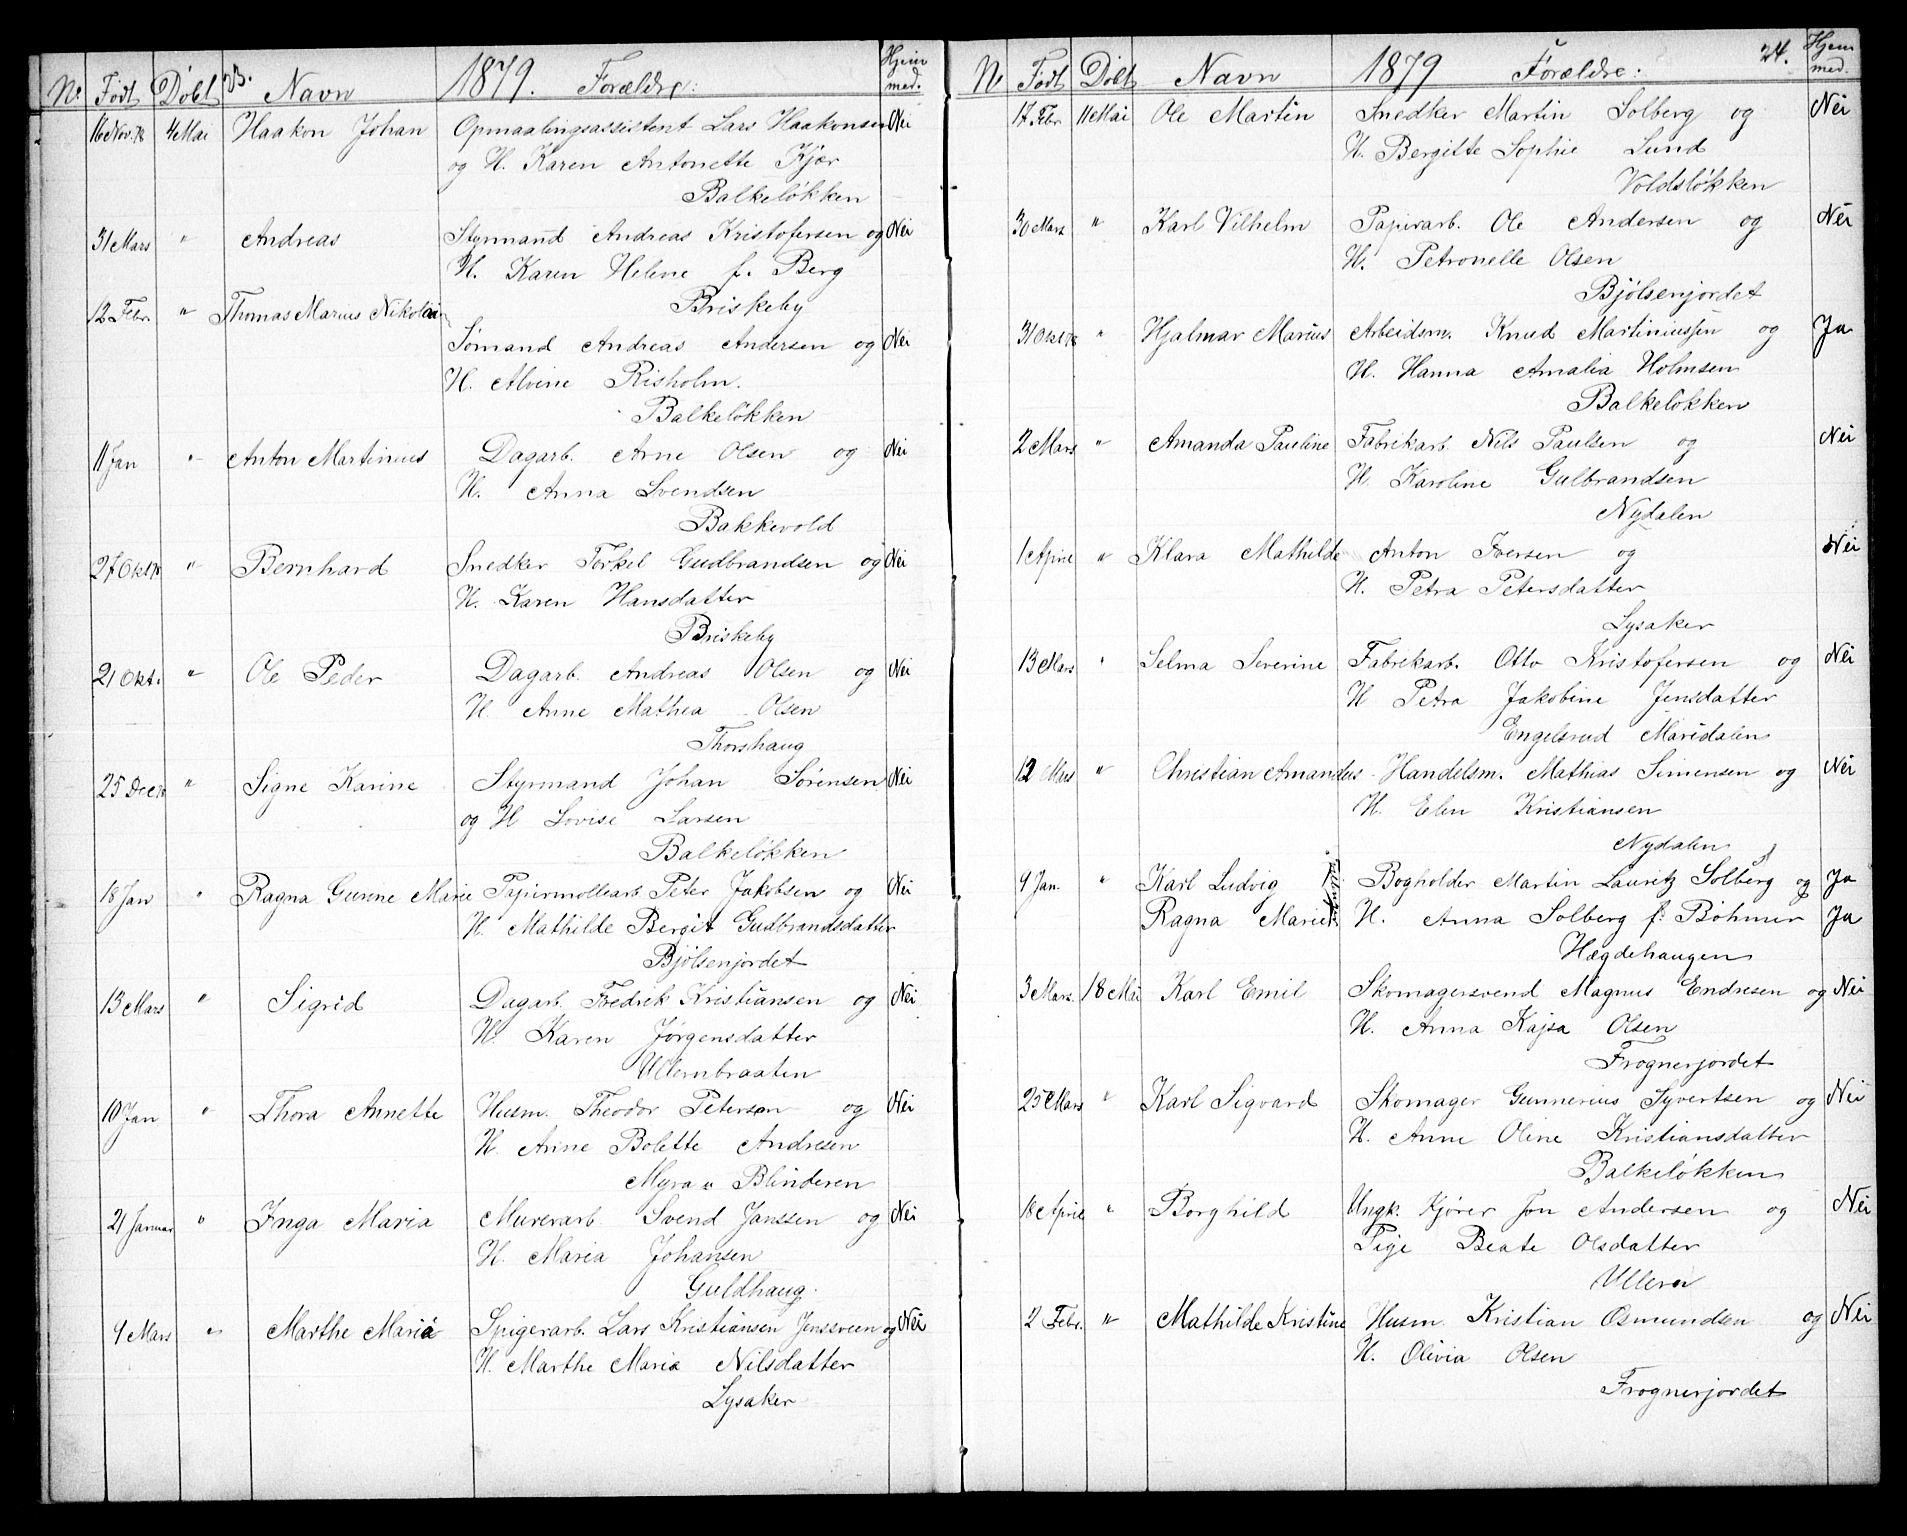 No Født Døbt 23. Navn 1879. Forældre: Hjem med.
16 Nov. 78 4 Mai Haakon Johan Opmaalingsassistent Lars Haakonsen Nei
og H. Karen Antonette Kjær
Balkeløkken
31 Mars " Andreas Styrmand Andreas Kristofersen og Nei
H. Karen Helene f. Berg
Briskeby
12 Febr. " Thomas Marius Nikolai
Sømand Andreas Andersen og Nei
H. Alvine Risholm.
Balkeløkken
11 Jan " Anton Martinius Dagarb. Arne Olsen og Nei
H. Anna Svendsen
Bakkevold
27 Okt 78 " Bernhard Snedker Torkel Gudbrandsen og Nei
H. Karen Hansdatter
Briskeby
21 Okt. " Ole Peder Dagarb. Andreas Olsen og Nei
H. Anne Mathea Olsen
Thorshaug
25 Dec 78 " Signe Karine Styrmand Johan Sørensen Nei
og H Lovise Larsen
Balkeløkken
18 Jan " Ragna Gunne Marie Papirmøllearb Peter Jakobsen og Nei
H. Mathilde Bergit Gudbrandsdatter
Bjølsenjordet
13 Mars " Sigrid Dagarb. Fredrik Kristiansen og Nei
H. Karen Jørgensdatter
Ullernbraaten
10 Jan " Thora Annette Husm. Theodor Petersen og Nei
H. Anne Bolette Andresen
Myra u Blinderen
21 Januar " Inga Maria Murerarb Svend Janssen og Nei
H. Maria Johansen
Guldhaug.
9 Mars " Marthe Maria Spigerarb. Lars Kristiansen Jensveen og Nei
H. Marthe Maria Nilsdatter
Lysaker
No Født Døbt Navn 1879 Forældre: 24. Hjem med.
17 Febr 11 Mai Ole Martin Snedker Martin Solberg og Nei
H. Bergitte Sophie Lund
Voldsløkken
30 Mars " Karl Vilhelm Papirarb. Ole Andersen og Nei
H. Petronelle Olsen
Bjølsenjordet
31 Okt 78 " Hjalmar Marius Arbeidsm. Knud Martiniussen og Ja
H. Hanna Amalia Holmsen
Balkeløkken
2 Mars " Amanda Pauline Fabrikarb Nils Paulsen og Nei
H. Karoline Gulbrandsen
Nydalen
1 April " Klara Mathilde Anton Iversen og Nei
H. Petra Petersdatter
Lysaker
13 Mars " Selma Severine Fabrikarb. Otto Kristofersen og Nei
H Petra Jakobine Jensdatter
Engelsrud Maridalen
12 Mars " Christian Amandus Handelsm. Mathias Simensen og Nei
H. Elen Kristiansen
Nydalen
9 Jan. " Karl Ludvig Bogholder Martin Lauritz Solberg og Ja
Ragna Marie H. Anna Solberg f. Bøhmer Ja
Hægdehaugen
3 Mars. 18 Mai Karl Emil Skomagersvend Magnus Endresen og Nei
H. Anna Kajsa Olsen
Frognerjordet
25 Mars " Karl Sigvard Skomager Gunnerius Syvertsen og Nei
H. Anne Oline Kristiansdatter
Balkeløkken
18 April " Borghild Ungk. Kjører Jon Andersen og Nei
Pige Beate Olsdatter
Ullern
2 Febr. " Mathilde Kristine Husm. Kristian Osmundsen og Nei
H. Olivia Olsen
Frognerjordet